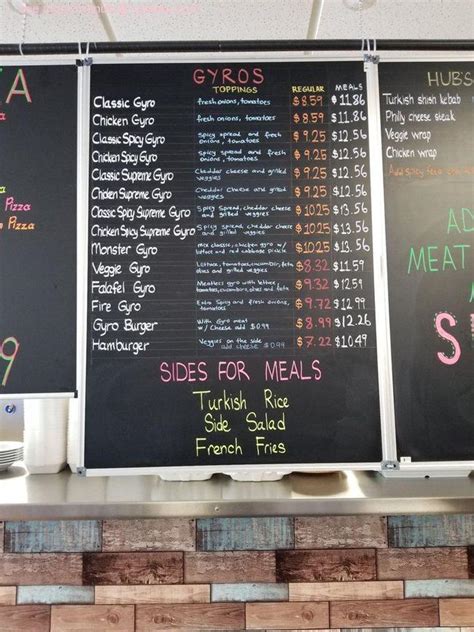 A
Pizza
Pizza
9
GYROS
TOPPINGS REGULAR MEALS
Classic Gyro fresh onions, tomatoes $8.59 $11.86
Chicken Gyro fresh onions, tomatoes $8.59 $11.86
Classic Spicy Gyro Spicy spread and fresh onions, tomatoes $9.25 $12.56
Chicken Spicy Gyro Spicy spread and fresh onions, tomatoes $9.25 $12.56
Classic Supreme Gyro Cheddar cheese and grilled veggies $9.25 $12.56
Chicken Supreme Gyro Cheddar Cheese and grilled veggies $9.25 $12.56
Classic Spicy Supreme Gyro Spicy Spread, cheddar cheese and grilled veggies $10.25 $13.56
Chicken Spicy Supreme Gyro Spicy Spread, cheddar cheese and grilled veggies $10.25 $13.56
Monster Gyro Mix classic, chicken gyro w/ lettuce and red cabbage pickle $10.25 $13.56
Veggie Gyro Lettuce, tomatoes, cucumber, feta olives and grilled veggies $8.32 $11.59
Falafel Gyro Meatless gyro with lettuce, tomatoes, cucumbers, olives and feta $9.72 $12.99
Fire Gyro Extra Spicy and fresh onions, tomatoes $9.72 $11.99
Gyro Burger With Gyro meat w/ Cheese add $0.99 $8.99 $12.26
Hamburger Veggies on the side add cheese $0.99 $7.22 $10.49
SIDES FOR MEALS
Turkish Rice
Side Salad
French Fries
HUB'S
Turkish shish kebab
Philly cheese steak
Veggie wrap
Chicken wrap
Add spicy
AD
MEAT
S